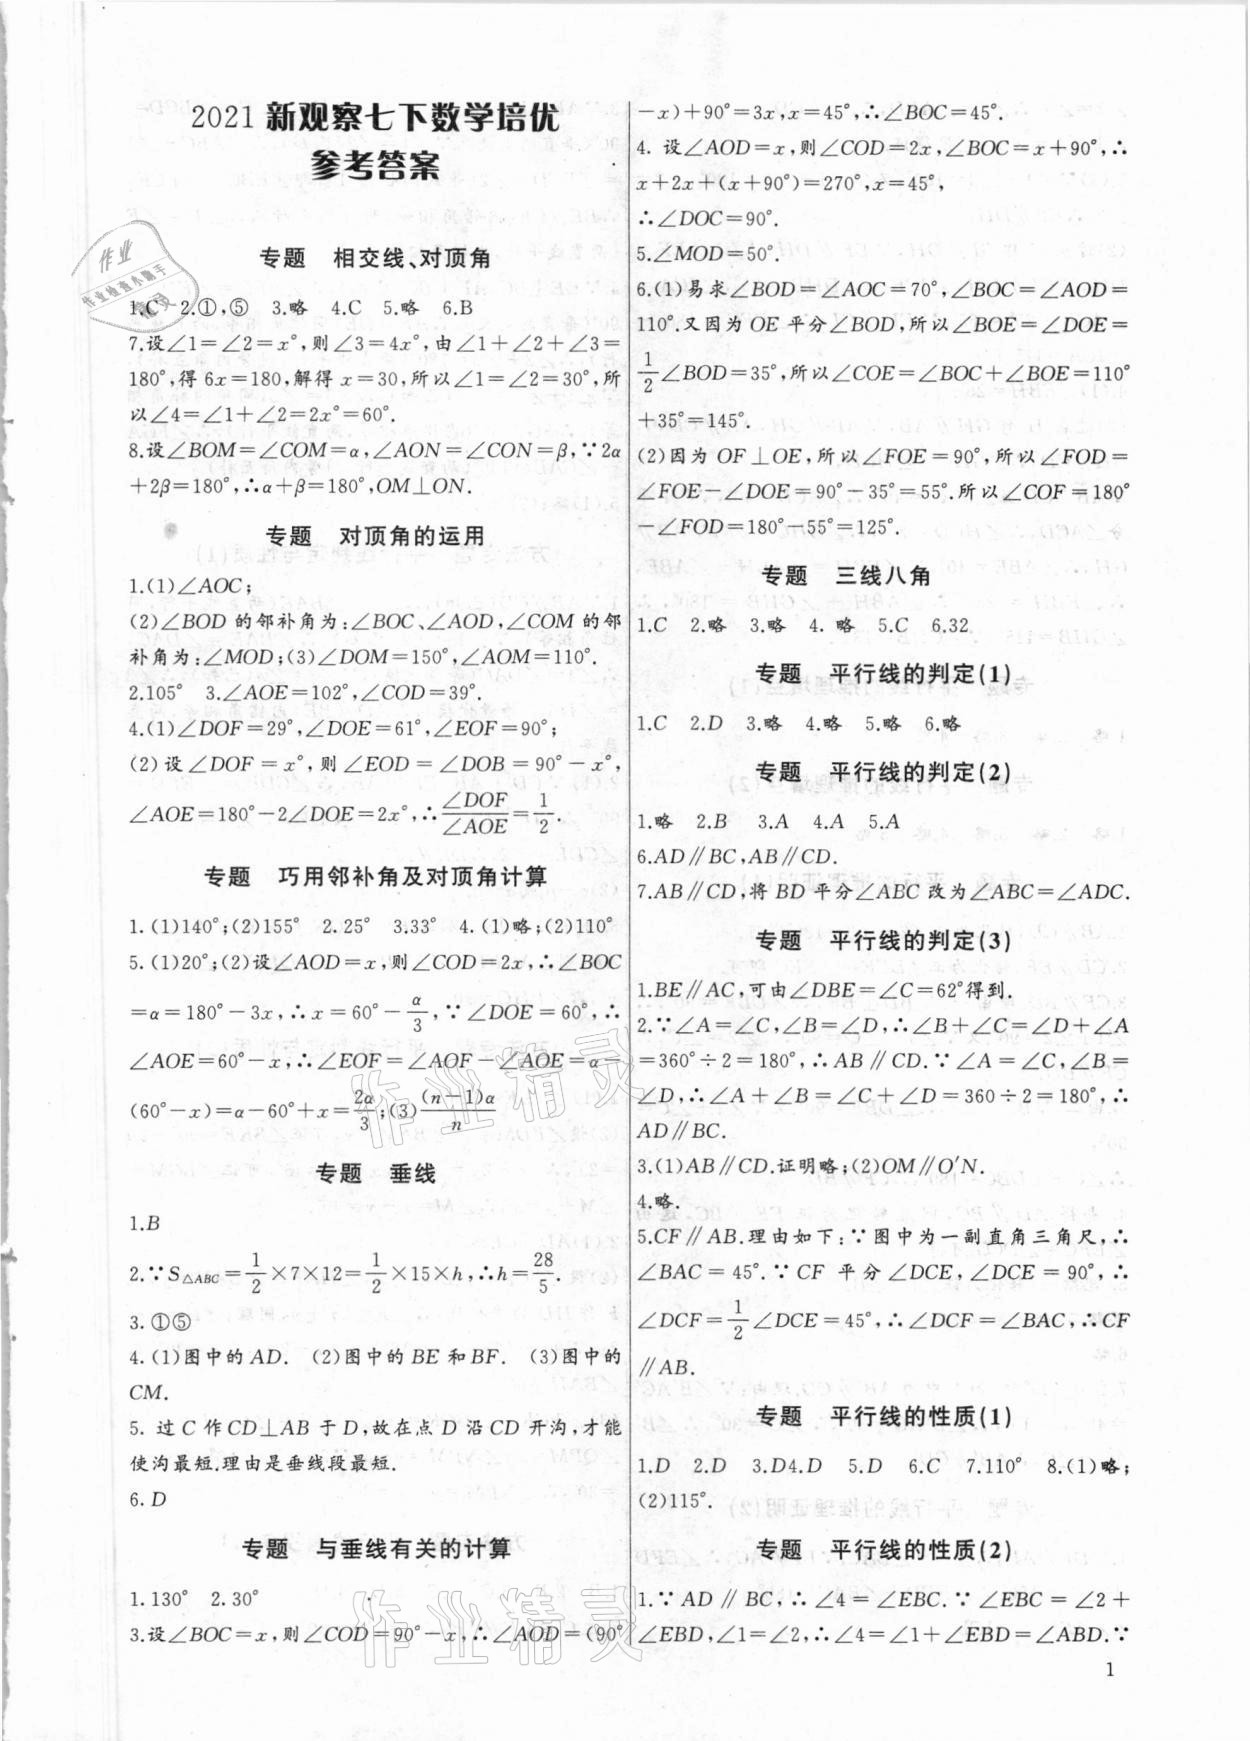 2021 新观察七下数学培优
参考答案
专题 相交线、对顶角
1.C 2.①,⑤ 3.略 4.C 5.略 6.B
7.设∠1=∠2=x°,则∠3=4x°,由∠1+∠2+∠3=
180°,得 6x=180,解得 x=30,所以∠1=∠2=30°,所
以∠4=∠1+∠2=2x°=60°.
8.设∠BOM=∠COM=α,∠AON=∠CON=β,∵2α
+2β=180°,∴α+β=180°,OM⊥ON.
专题 对顶角的运用
1.(1)∠AOC;
(2)∠BOD 的邻补角为:∠BOC、∠AOD,∠COM 的邻
补角为:∠MOD;(3)∠DOM=150°,∠AOM=110°.
2.105° 3.∠AOE=102°,∠COD=39°.
4.(1)∠DOF=29°,∠DOE=61°,∠EOF=90°;
(2)设∠DOF=x°,则∠EOD=∠DOB=90°-x°,
∠AOE=180°-2∠DOE=2x°,∴∠DOF/∠AOE=1/2.
专题 巧用邻补角及对顶角计算
1.(1)140°;(2)155° 2.25° 3.33° 4.(1)略;(2)110°
5.(1)20°;(2)设∠AOD=x,则∠COD=2x,∴∠BOC
=α=180°-3x,∴x=60°-α/3,∵∠DOE=60°,∴
∠AOE=60°-x,∴∠EOF=∠AOF-∠AOE=α-
(60°-x)=α-60°+x=2α/3;(3)(n-1)α/n
专题 垂线
1.B
2.∵S△ABC=1/2×7×12=1/2×15×h,∴h=28/5.
3.①⑤
4.(1)图中的 AD. (2)图中的 BE 和 BF. (3)图中的
CM.
5. 过 C 作 CD⊥AB 于 D,故在点 D 沿 CD 开沟,才能
使沟最短.理由是垂线段最短.
6.D
专题 与垂线有关的计算
1.130° 2.30°
3.设∠BOC=x,则∠COD=90°-x,∴∠AOD=(90°
-x)+90°=3x,x=45°,∴∠BOC=45°.
4. 设∠AOD=x,则∠COD=2x,∠BOC=x+90°,∴
x+2x+(x+90°)=270°,x=45°,
∴∠DOC=90°.
5.∠MOD=50°.
6.(1)易求∠BOD=∠AOC=70°,∠BOC=∠AOD=
110°.又因为 OE 平分∠BOD,所以∠BOE=∠DOE=
1/2∠BOD=35°,所以∠COE=∠BOC+∠BOE=110°
+35°=145°.
(2)因为 OF⊥OE,所以∠FOE=90°,所以∠FOD=
∠FOE-∠DOE=90°-35°=55°.所以∠COF=180°
-∠FOD=180°-55°=125°.
专题 三线八角
1.C 2.略 3.略 4. 略 5.C 6.32
专题 平行线的判定(1)
1.C 2.D 3.略 4.略 5.略 6.略
专题 平行线的判定(2)
1.略 2.B 3.A 4.A 5.A
6.AD∥BC,AB∥CD.
7.AB∥CD,将 BD 平分∠ABC 改为∠ABC=∠ADC.
专题 平行线的判定(3)
1.BE∥AC,可由∠DBE=∠C=62°得到.
2.∵∠A=∠C,∠B=∠D,∴∠B+∠C=∠D+∠A
=360°÷2=180°,∴AB∥CD.∵∠A=∠C,∠B=
∠D,∴∠A+∠B=∠C+∠D=360÷2=180°,∴
AD∥BC.
3.(1)AB∥CD.证明略;(2)OM∥O′N.
4.略.
5.CF∥AB.理由如下:∵图中为一副直角三角尺,∴
∠BAC=45°.∵CF 平分∠DCE,∠DCE=90°,∴
∠DCF=1/2∠DCE=45°,∴∠DCF=∠BAC,∴CF
∥AB.
专题 平行线的性质(1)
1.D 2.D 3.D4.D 5.D 6.C 7.110° 8.(1)略;
(2)115°.
专题 平行线的性质(2)
1.∵AD∥BC,∴∠4=∠EBC.∵∠EBC=∠2+
∠EBD,∠1=∠2,∴∠4=∠1+∠EBD=∠ABD.∵
1
作业
作业检查小助手
精灵
作业精灵
作业精灵